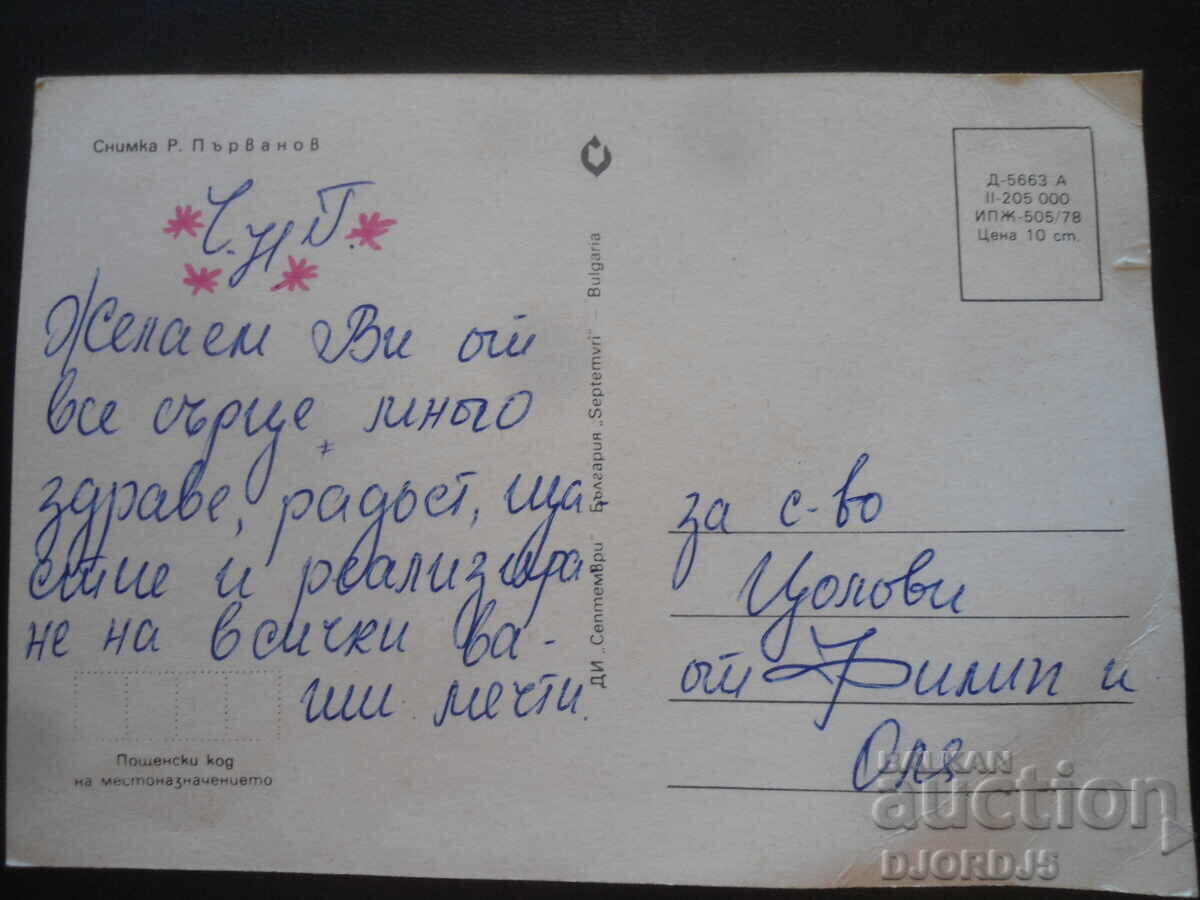 Снимка Р. Първанов
Ч.Н.Г.
Желаем Ви от
все сърце много
здраве, радост, ща-
стие и реализира-
не на всички ва-
ши мечти.
Пощенски код
на местоназначението
ДИ „Септември" България „Septemvri" — Bulgaria
Д-5663 А
II-205 000
ИПЖ-505/78
Цена 10 ст.
за с-во
Цолови
от Филип и
Оля
BALKAN
auction
DJORDJ5